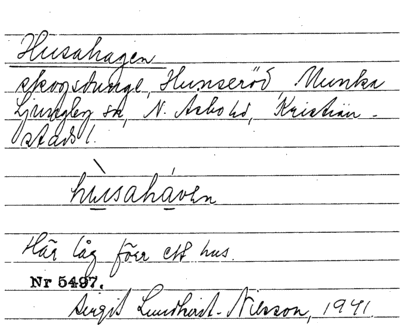 Husahagen
skogsdunge, Hunseröd Munka
Ljungby sn, N. Åsbo hd, Kristian-
stads l.
hùsaháven
Här låg förr ett hus.
Nr 5497.
Bergit Lundkvist-Nilsson, 1941.